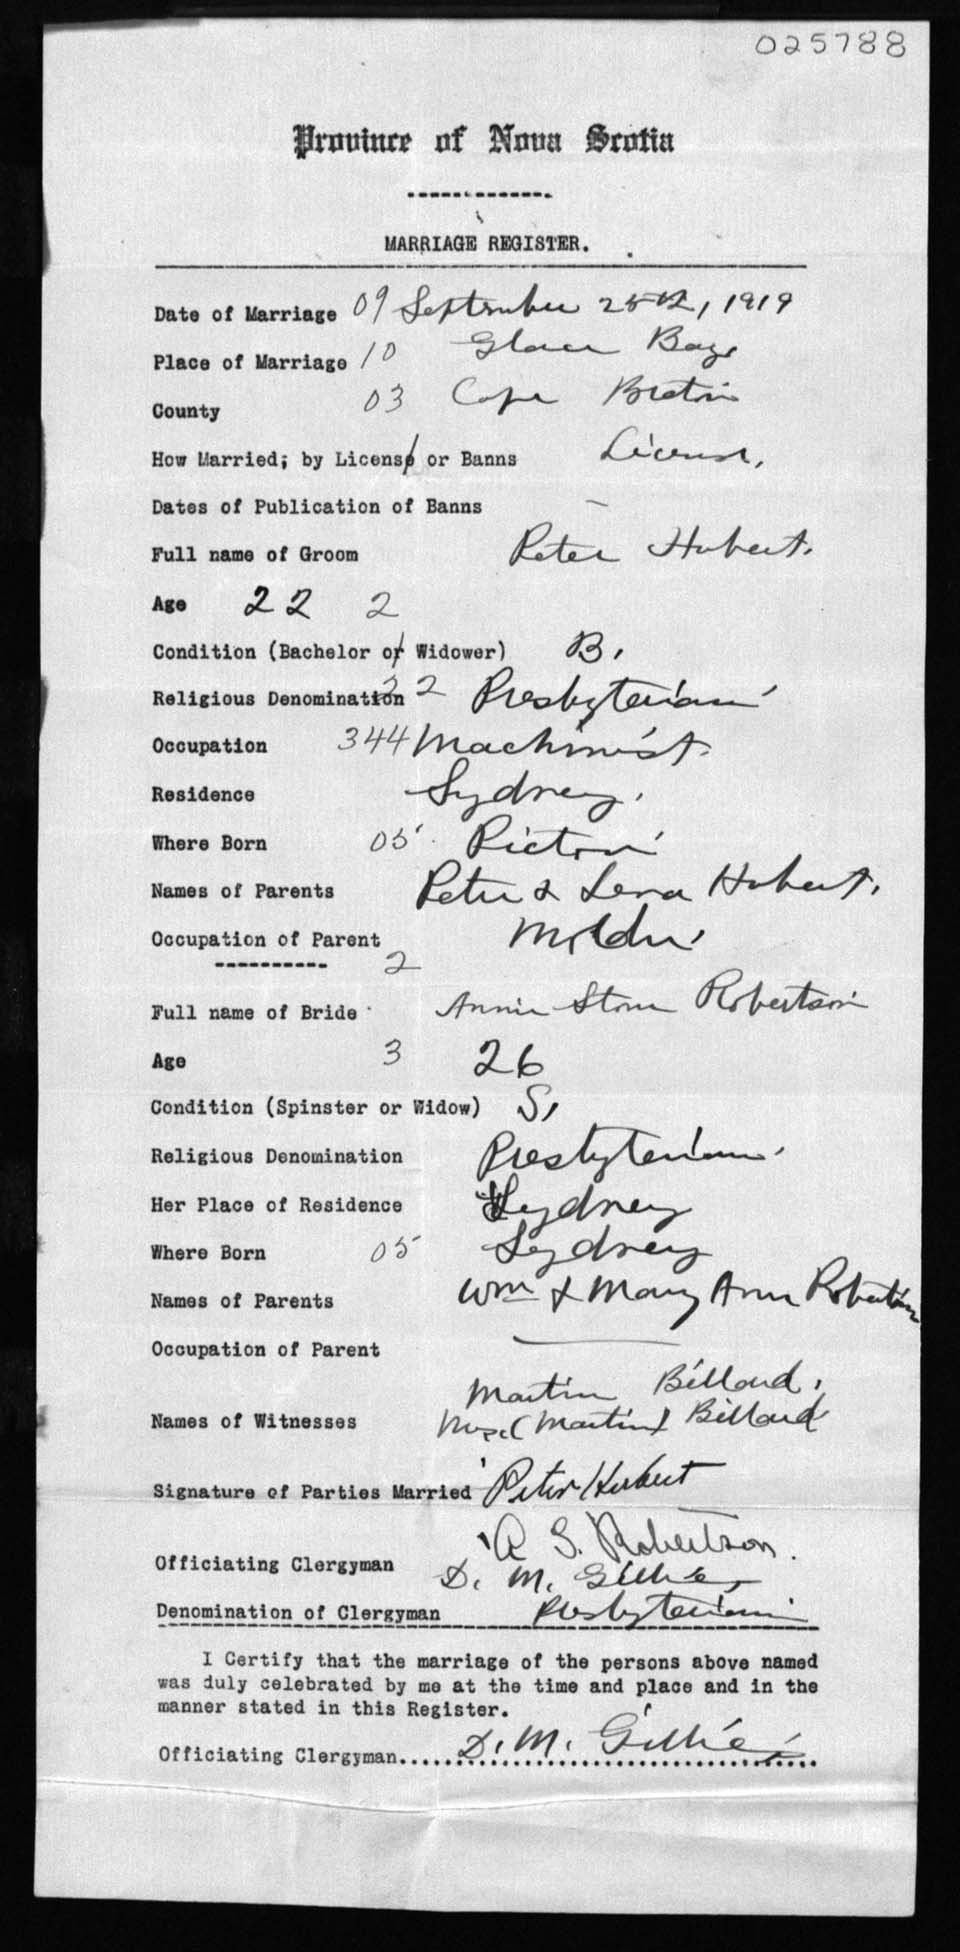 025788
Province of Nova Scotia
MARRIAGE REGISTER.
Date of Marriage 09 September 25th, 1919
Place of Marriage 10 Glace Bay
County 03 Cape Breton
How Married; by License or Banns License.
Dates of Publication of Banns –
Full name of Groom Peter Hubert.
Age 22 2
Condition (Bachelor or Widower) B.
Religious Denomination 22 Presbyterian
Occupation 344 Machinist.
Residence Sydney.
Where Born 05 Pictou
Names of Parents Peter & Lena Hubert.
Occupation of Parent Molder
2
Full name of Bride Annie Stone Robertson
Age 3 26
Condition (Spinster or Widow) S,
Religious Denomination Presbyterian.
Her Place of Residence Sydney
Where Born 05 Sydney
Names of Parents Wm & Mary Ann Robertson
Occupation of Parent —
Martin Billard,
Names of Witnesses Mrs. (Martin) Billard
Signature of Parties Married Peter Hubert
A S. Robertson.
Officiating Clergyman D. M. Gillies
Denomination of Clergyman Presbyterian
I Certify that the marriage of the persons above named
was duly celebrated by me at the time and place and in the
manner stated in this Register.
Officiating Clergyman.... D. M. Gillies